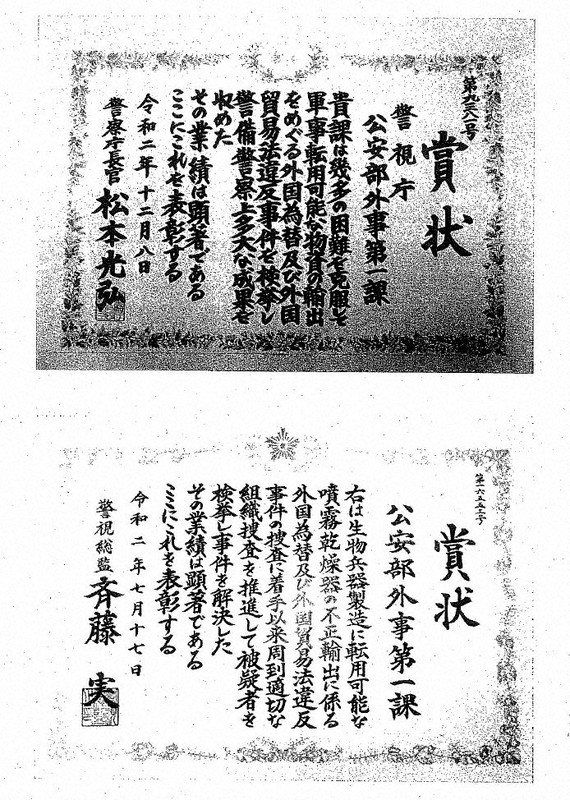 賞状
第九三八一号
警視庁
公安部外事第一課
貴課は幾多の困難を克服して
軍事転用可能な物資の輸出
をめぐる外国為替及び外国
貿易法違反事件を検挙し
警備警察上多大な成果を
収めた
その業績は顕著である
ここにこれを表彰する
令和二年十二月八日
警察庁長官 松本光弘
賞状
公安部外事第一課
右は生物兵器製造に転用可能な
噴霧乾燥器の不正輸出に係る
外国為替及び外国貿易法違反
事件の捜査に着手以来周到適切な
組織捜査を推進して被疑者を
検挙し事件を解決した
その業績は顕著である
ここにこれを表彰する
令和二年七月十七日
警視総監 斉藤 実